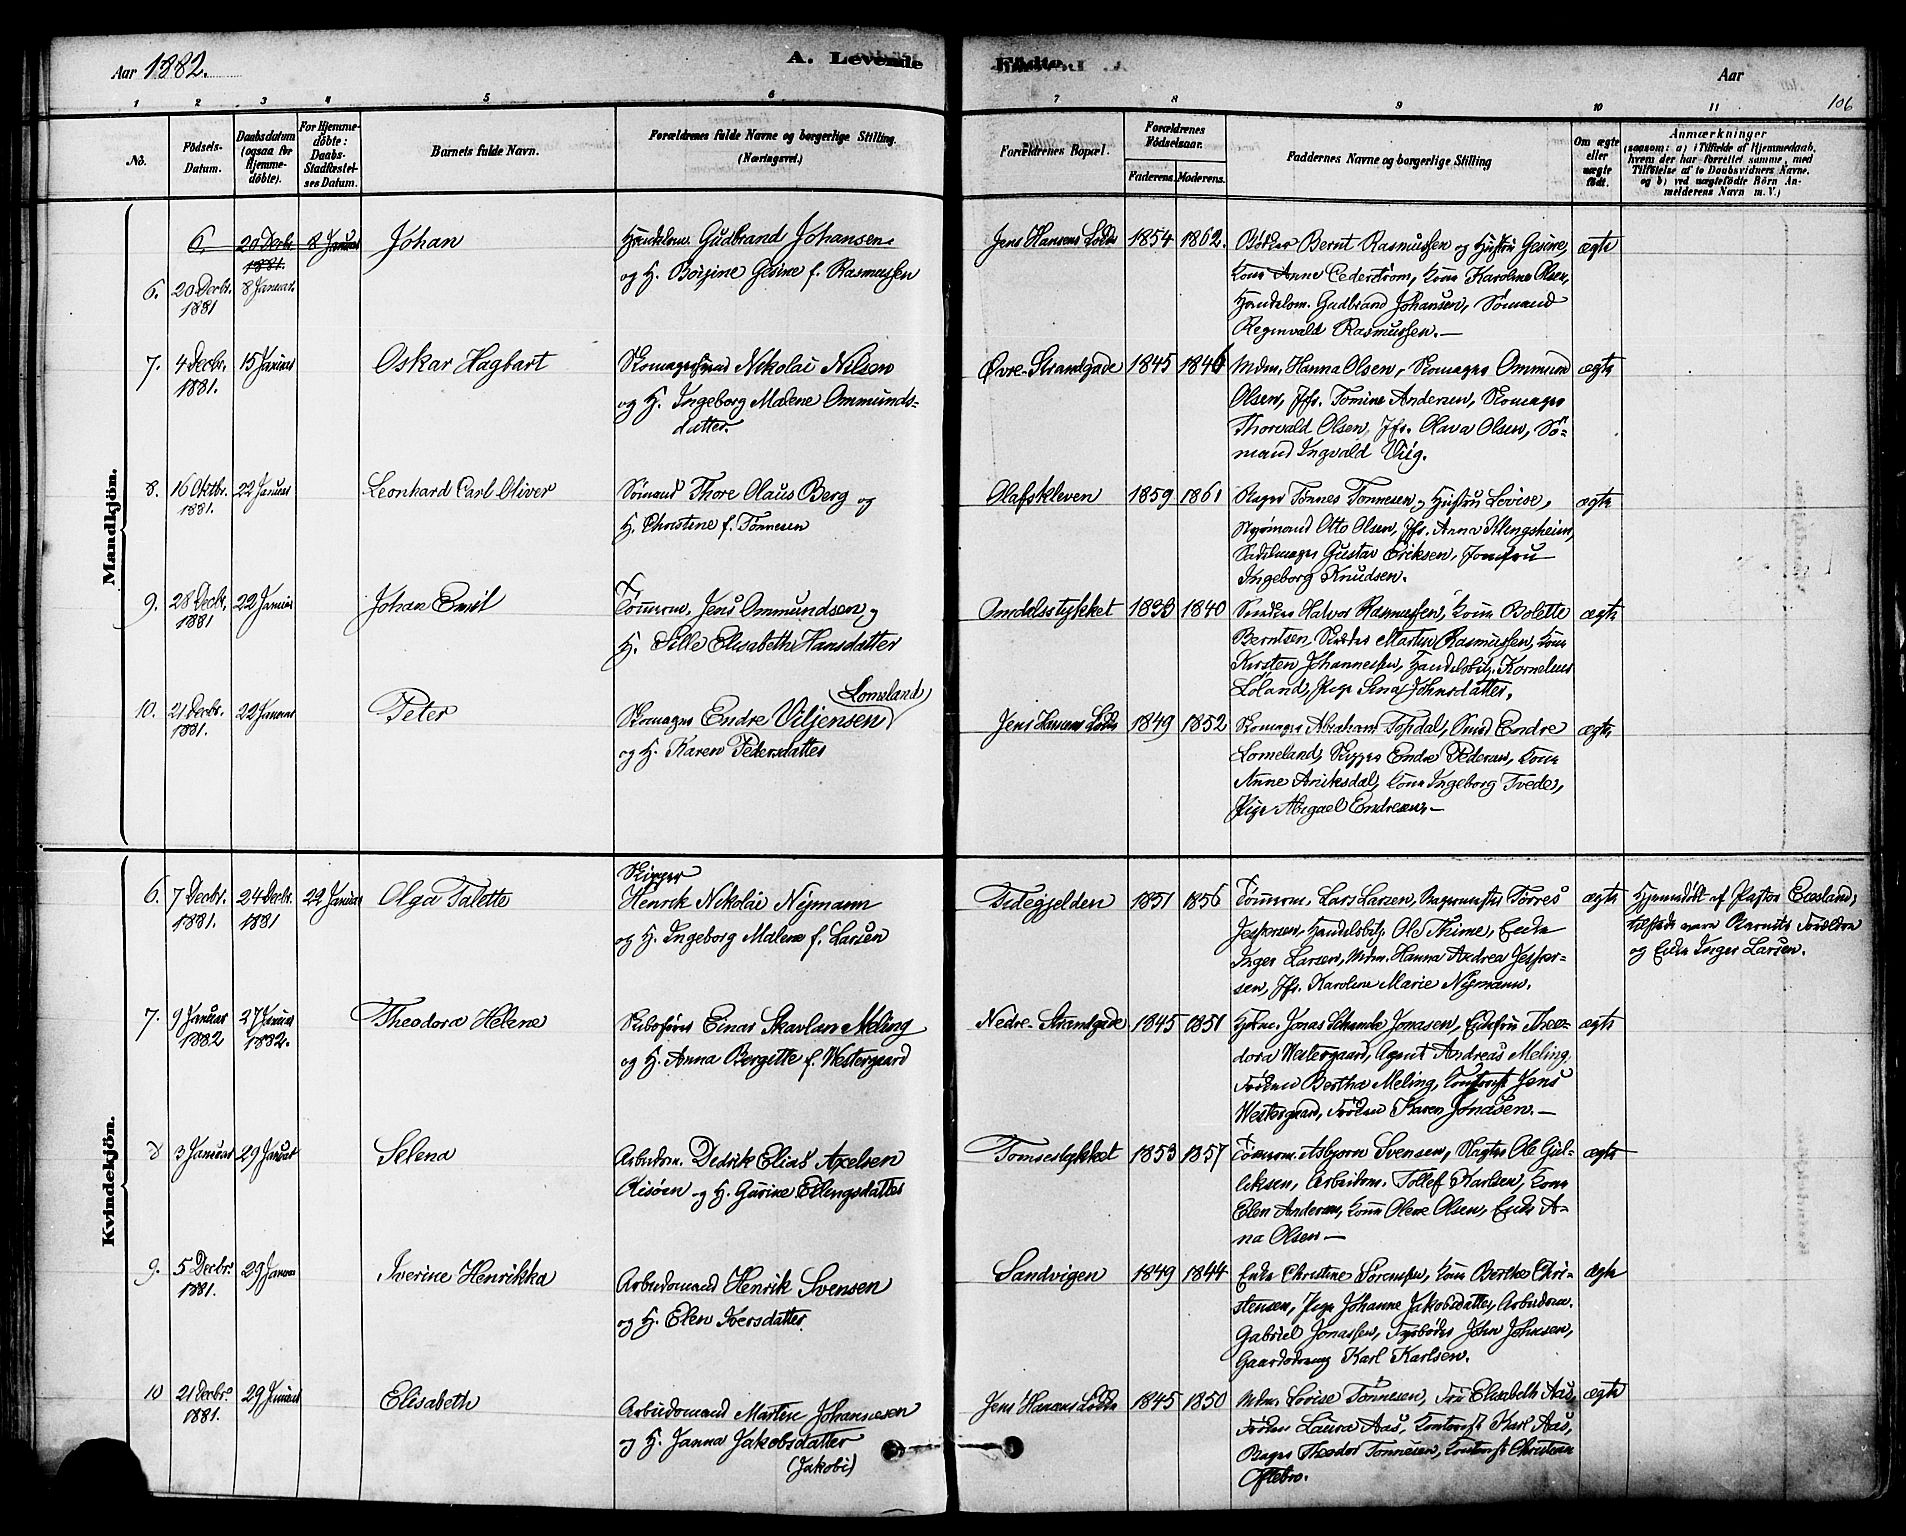 Aar 1882.
A. Levende
Födte
Aar
106
1 2 3 4 5 6 7 8 9 10 11
No.
Födsels-
Datum.
Daabsdatum
(ogsaa for
Hjemme-
döbte).
For Hjemme-
döbte:
Daabs-
Stadfæstel-
ses Datum.
Barnets fulde Navn.
Forældrenes fulde Navne og borgerlige Stilling
(Næringsvei.)
Forældrenes Bopæl.
Forældrenes
Födselsaar.
Faderens. Moderens.
Faddernes Navne og borgerlige Stilling
Om ægte
eller
uægte
födt.
Anmærkninger
(saasom: a) i Tilfælde af Hjemmedaab,
hvem der har forrettet samme, med
Tilföielse af to Daabsvidners Navne,
og b) ved uægtefödte Börn An-
melderens Navn m. V.)
Mandkjön.
6. 20 Decbr. 8 Januar
1881.
6. 20 Decbr. 8 Januar
1881
Johan
Handelsm. Gudbrand Johansen
og H. Gesine f. Rasmussen
Jens Hansens 1854 1862.
Bødker Bernt Rasmussen og Hustru Gesine,
Kone Anne Cederstrøm, Kone Karoline Olsen,
Handelsm. Gudbrand Johansen, Sømand
Reginvald Rasmussen.—
ægte
7. 4 Decbr. 15 Januar
1881.
Oskar Hagbart
Nikolai Nilsen
og H. Ingeborg Malene Ommunds-
datter.
Øvre-Strandgade 1845 1846
Mdm. Hanna Olsen, Skomager Ommund
Olsen, Jfr. Tomine Andersen, Skomager
Thorvald Olsen, Jfr. Olava Olsen, Sö-
mand Ingvald Viig.
ægte
8. 16 Oktbr. 22 Januar
1881.
Leonhard Carl Oliver
Sömand Thore Olaus Berg og
H. Christine f. Tønnesen
Olafskleven 1859 1861
Bager Tönnes Tönnesen og Hustru Lovise,
Styrmand Otto Olsen, Jfr. Anna Klingsheim,
Seilmager Gustav Eriksen, Jomfru
Ingeborg Knudsen.
ægte
9. 28 Decbr. 22 Januar
1881
Johan Emil
Tömmerm. Jens Ommundsen og
H. Sille Elisabeth Hansdatter
1833 1840
Halvor Rasmussen, Kone Bolette
Berntsen, Martin Rasmussen, Kone
Kirsten Johannessen, Handelsbetj. Kornelius
Löland, Pige Sina Johnsdatter.
ægte
10. 21 Decbr. 22 Januar
1881.
Peter
Skomager Endre Viljensen (Lomeland)
og H. Karen Pedersdatter
Jens Hansens 1849 1852
Skomager Abraham Topdal, Smed Endre
Lomeland, Skipper Endre Pedersen, Kone
Anne Kone Ingeborg Tvede,
Pige Abigael Endresen.—
ægte
Kvindekjön.
6. 7 Decbr. 24 Decbr. 22 Januar
1881. 1881
Olga Talette
Skipper
Henrik Nikolai Nymann
og H. Ingeborg Malene f. Larsen
Tidegjelden 1851 1856
Tömmerm. Lars Larsen, Bagermester Törres
Jespersen, Handelsbetj. Ole Thime, Enke
Inger Larsen, Mdm. Hanna Andrea Jesper-
sen, Jfr. Karoline Marie Nymann.
ægte
Hjemmedöbt af Pastor
tilstede vare Barnets Forældre
og Enke Inger Larsen.
7. 9 Januar 27 Januar
1882 1882.
Theodora Helene
Skibsförer Einar Skavlan Meling
og H. Anna Bergitte f. Westergaard
Nedre-Strandgade 1845 1851
Jonas Schanche Jonasen, Enkefru Theo-
dora Westergaard, Agent Andreas Meling,
Fröken Bertha Meling, Kontorist Jens
Westergaard, Fröken Karen Jonasen.—
ægte
8 3 Januar 29 Januar
Selena
Arbeidsm. Dedrik Elias Axelsen
Risöen og H. Gurine Erlingsdatter
1853 1857
Tömmerm. Asbjørn Svensen, Ole Gul-
liksen, Arbeidsm. Tollef Karlsen, Kone
Elen Andersen, Kone Olene Olsen, Enke A-
na Olsen—
ægte
9. 5 Decbr. 29 Januar
1881.
Iverine Henrikka
Arbeidsmand Henrik Svensen
og H. Elen Iversdatter
Sandvigen 1849 1844
Enke Christine Sörensen, Kone Berthe Chri-
stensen, Pige Johanne Jakobsdatter, Arbeidsm.
Gabriel Jonassen, Fyrböder John Johnsen,
Gaardsdreng Karl Karlsen.
ægte
10 21 Decbr. 29 Januar
1881.
Elisabeth
Arbeidsmand Martin Johannesen
og H. Janna Jakobsdatter
(Jakobi)
Jens Hansens 1845 1850
Mdm. Lovise Tönnesen, Fru Elisabeth Aas,
Fröken Laura Aas, Kontorist Karl Aas,
Bager Theodor Tönnesen, Kontorist Christian
Oftebro.
ægte